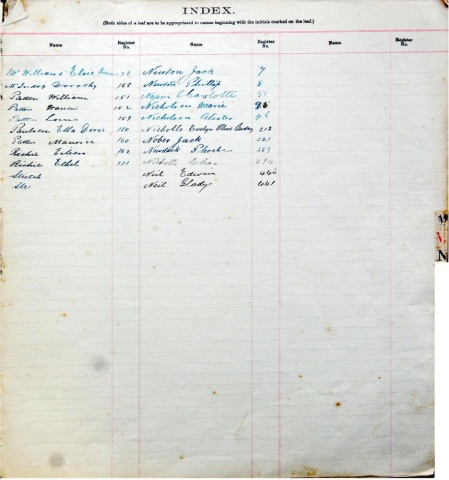 INDEX.
(Both sides of a leaf are to be appropriated to names beginning with the initials marked on the leaf.)
Name. Register No. Name. Register No. Name. Register No.
McWilliams Elsie 72 Newton Jack 7
Dorothy 148 Newton Phillip 8
Patten William 151 Napier Charlotte 37
Patten 152 Nicholson Marie
Patten 153 Nicholson Alister
Paulsen Ella Doris 180 Nicholls Evelyn Olive 212
Patten Maurice 160 Nober Jack 221
Ritchie Eileen 162 Phoebe 259
Ritchie Ethel 171 Nicholls Chas
Sketch Neil Edwin 440
Neil Gladys 441
N